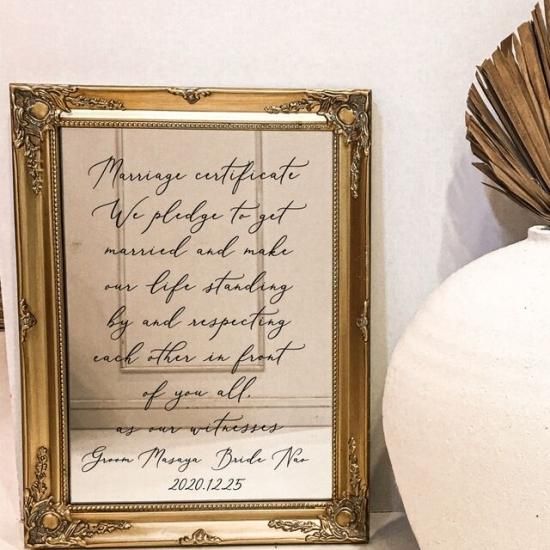 Marriage certificate
We pledge to get
married and make
our life standing
by and respecting
each other in front
of you all,
as our witnesses
Groom Masaya Bride Nao
2020.12.25